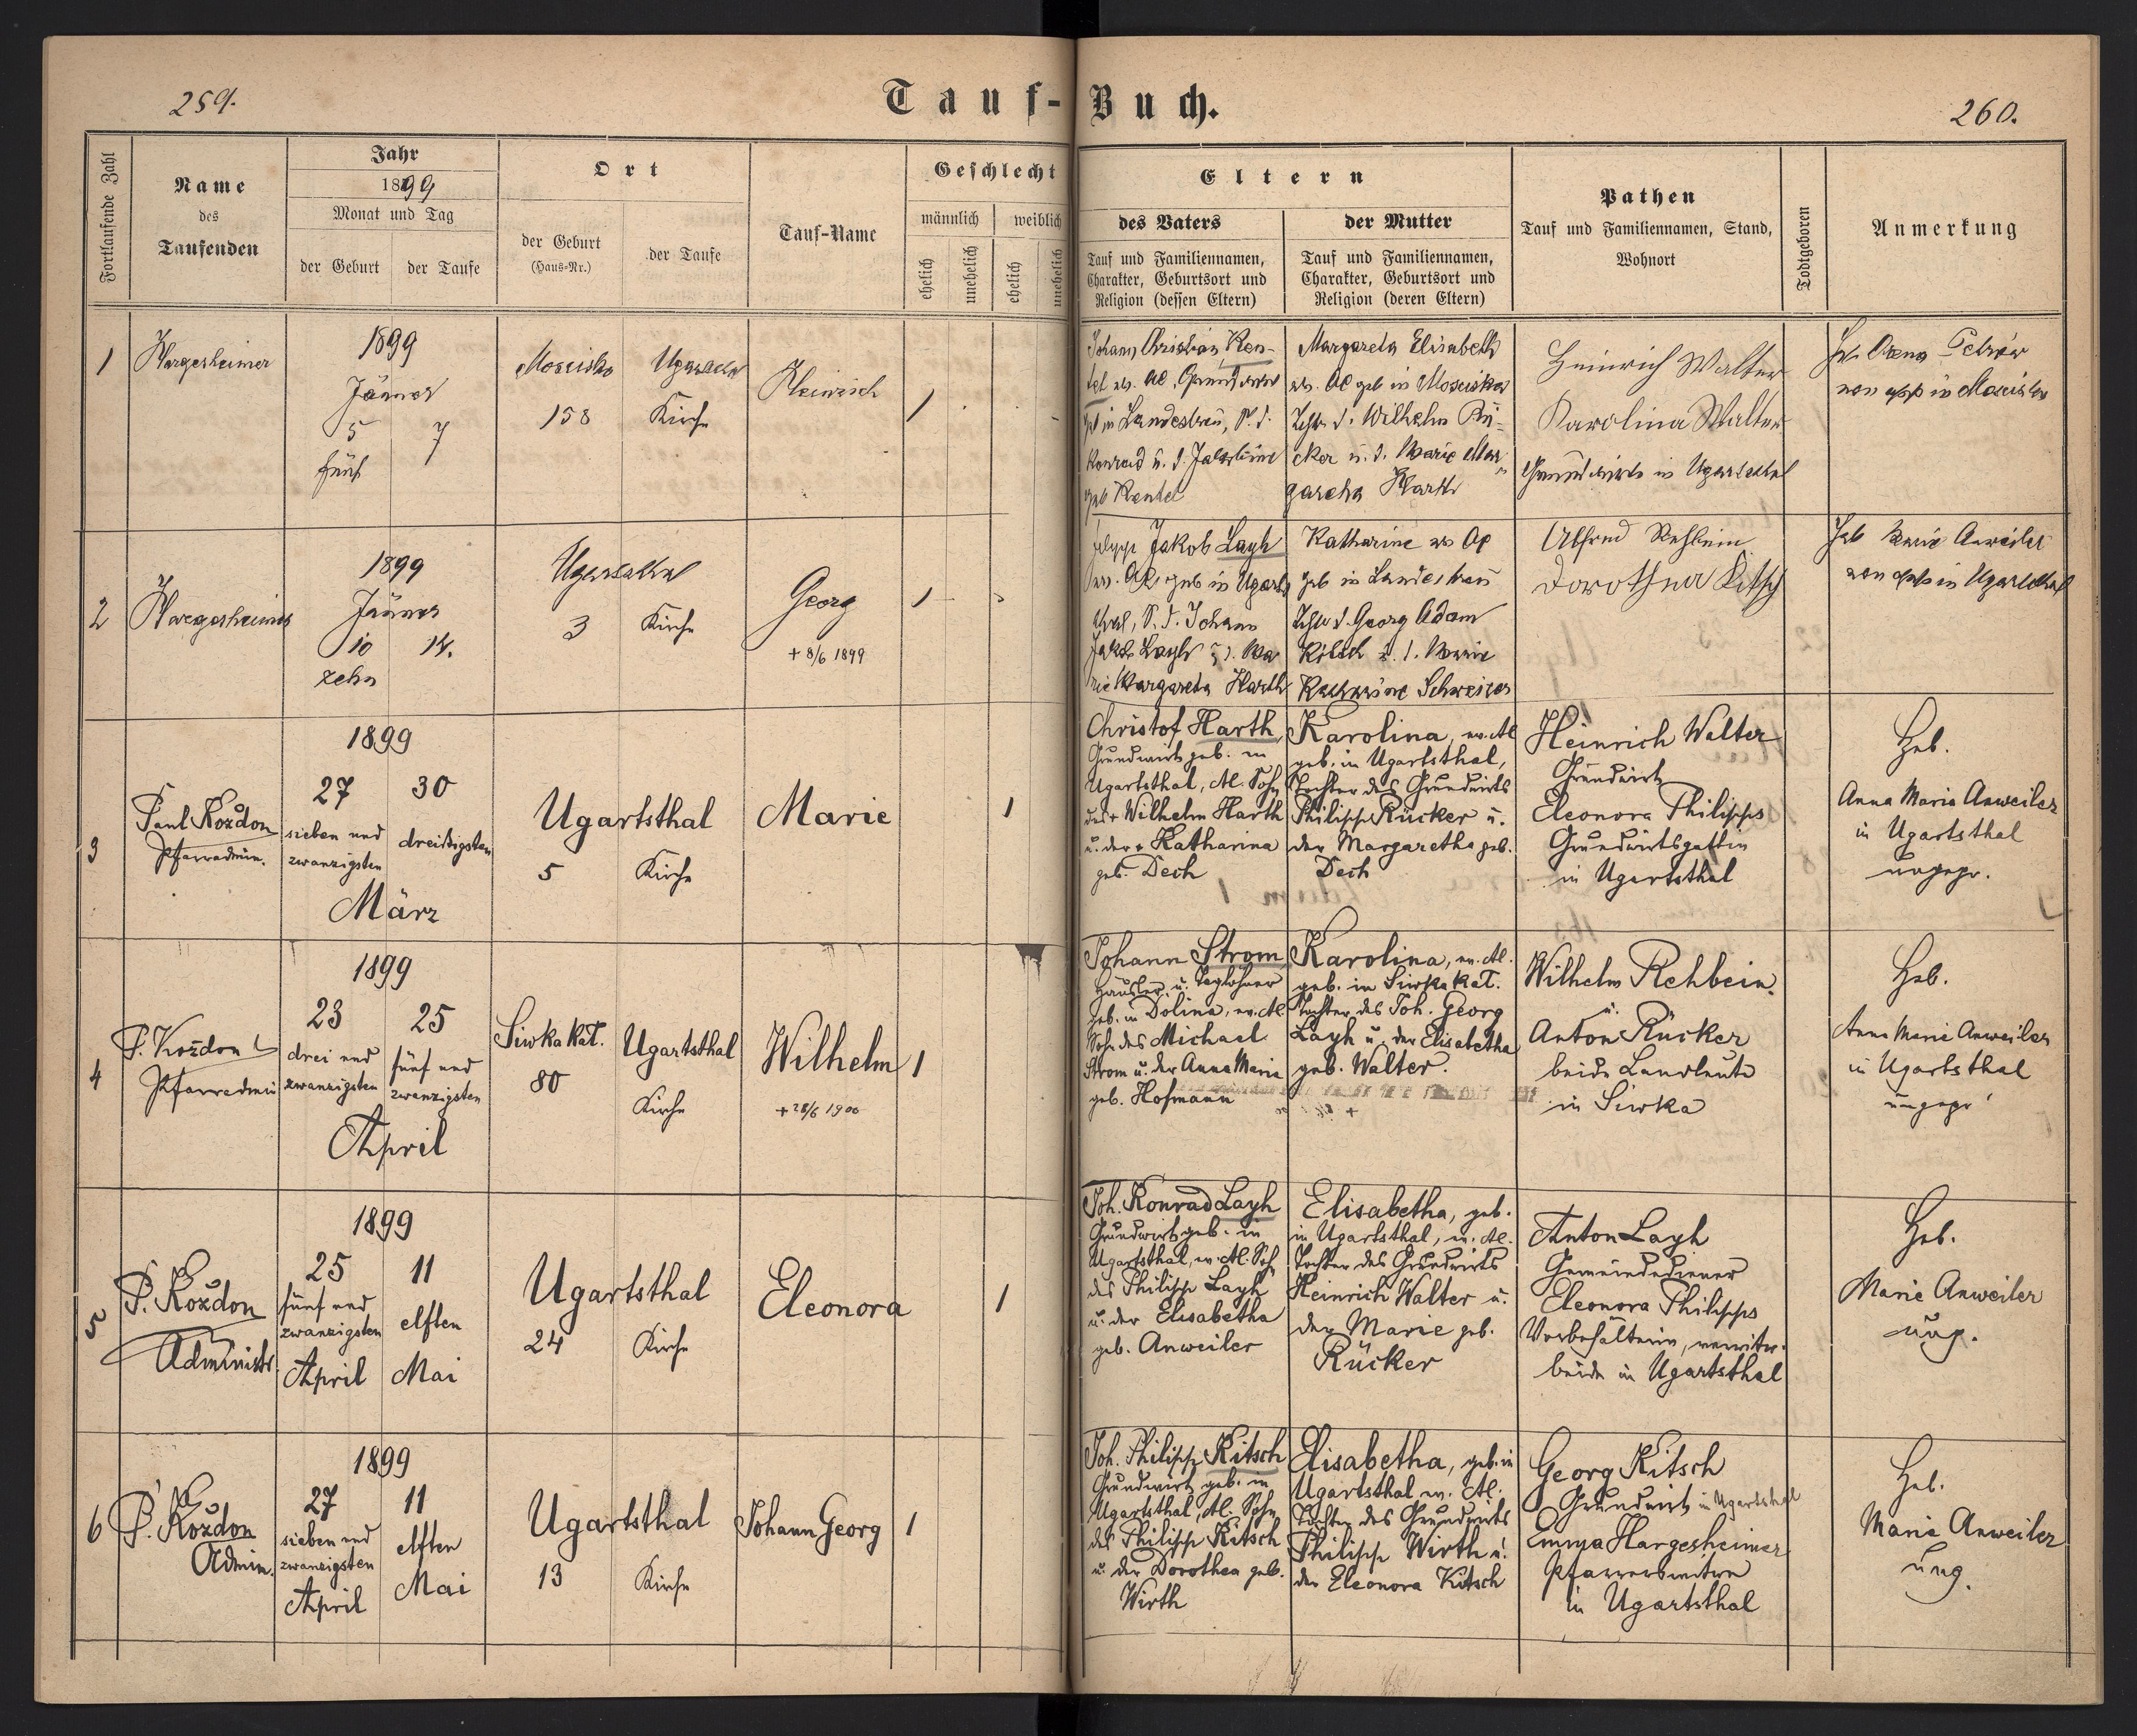 259.
Tauf-Buch.
260.
Fortlaufende Zahl
Name
des
Taufenden
Jahr
1899
Monat und Tag
der Geburt
der Taufe
Ort
der Geburt
(Haus-Nr.)
der Taufe
Tauf-Name
Geschlecht
männlich
weiblich
ehelich
unehelich
ehelich
unehelich
Eltern
des Vaters
Tauf und Familiennamen,
Charakter, Geburtsort und
Religion (dessen Eltern)
der Mutter
Tauf und Familiennamen,
Charakter, Geburtsort und
Religion (deren Eltern)
Pathen
Tauf und Familiennamen, Stand,
Wohnort
Todtgeboren
Anmerkung
1
Hargesheimer
1899
Jänner
5
7
fünf
Mosciska
158
Kirche
Heinrich
1
Johann Christian Ren-
tel
in Landestreu, S. d.
Konrad u. d.
geb Rentel
Margareta Elisabeth
geb in Mosciska
Wilhelm Rü-
cker u. d. Marie Mar-
gareta Harth
Heinrich Walter
Karolina Walter
Grundwirte in Ugartsthal
von in Mosciska
2
Hargesheimer
1899
Jänner
10
14.
zehn
Ugartsthal
3
Kirche
Georg
+ 8/6 1899
1
Jakob Layh
geb in Ugarts
thal, S. d. Johann
Jakob Layh u. d. Ma
rie Margareta Harth
Katharine
geb in Landestreu
Georg Adam
Kitsch u. d. Marie
Katharine Schweizer
Alfred Rehbein
Dorothea Kitsch
Heb Marie Anweiler
in Ugartsthal
3
Paul Kozdon
Pfarradmin.
1899
27
30
sieben und
zwanzigsten
dreißigsten
März
Ugartsthal
5
Kirche
Marie
1
Christof Harth,
Grundwirt geb. in
Ugartsthal, Al. Sohn
des + Wilhelm Harth
u. der + Katharina
geb. Dech
Karolina, ev. Al
geb. in Ugartsthal,
Tochter des Grundwirts
Philipp Rücker u.
der Margaretha geb.
Dech
Heinrich Walter
Grundwirt
Eleonora Philipps
Grundwirtsgattin
in Ugartsthal
Heb.
Anna Maria Anweiler
in Ugartsthal
ungepr.
4
P. Kozdon
Pfarradmin
1899
23
25
drei und
zwanzigsten
fünf und
zwanzigsten
April
Siwka kat.
80
Ugartsthal
Kirche
Wilhelm
+ 28/6 1900
1
Johann Strom
Häusler u. Taglöhner
geb. in Dolina, ev. Al.
Sohn des Michael
Strom u. der Anna Maria
geb. Hofmann
Karolina, ev. Al.
geb. in Siwka kat.
Tochter des Joh. Georg
Layh u. der Elisabetha
geb. Walter.
Wilhelm Rehbein
u.
Anton Rücker
beide Landleute
in Siwka
Heb.
Anna Maria Anweiler
in Ugartsthal
ungepr
5
P. Kozdon
Administr.
1899
25
11
fünf und
zwanzigsten
elften
April
Mai
Ugartsthal
24
Kirche
Eleonora
1
Joh. Konrad Layh
Grundwirt geb. in
Ugartsthal, ev. Al. Sohn
des Philipp Layh
u. der Elisabetha
geb. Anweiler
Elisabetha, geb.
in Ugartsthal, ev. Al.
Tochter des Grundwirts
Heinrich Walter u.
der Marie geb.
Rücker
Anton Layh
Gemeindediener
Eleonora Philipps
Vorbehälterin, verwitw.
beide in Ugartsthal
Heb.
Marie Anweiler
ung.
6
P. Kozdon
Admin.
1899
27
11
sieben und
zwanzigsten
elften
April
Mai
Ugartsthal
13
Kirche
Johann Georg
1
Joh. Philipp Kitsch
Grundwirt geb. in
Ugartsthal, Al. Sohn
des Philipp Kitsch
u. der Dorothea geb.
Wirth
Elisabetha, geb. in
Ugartsthal ev. Al.
Tochter des Grundwirts
Philipp Wirth u.
der Eleonora Kitsch
Georg Kitsch
Grundwirt in Ugartsthal
Emma Hargesheimer
Pfarrerswitwe
in Ugartsthal
Heb.
Marie Anweiler
ung.